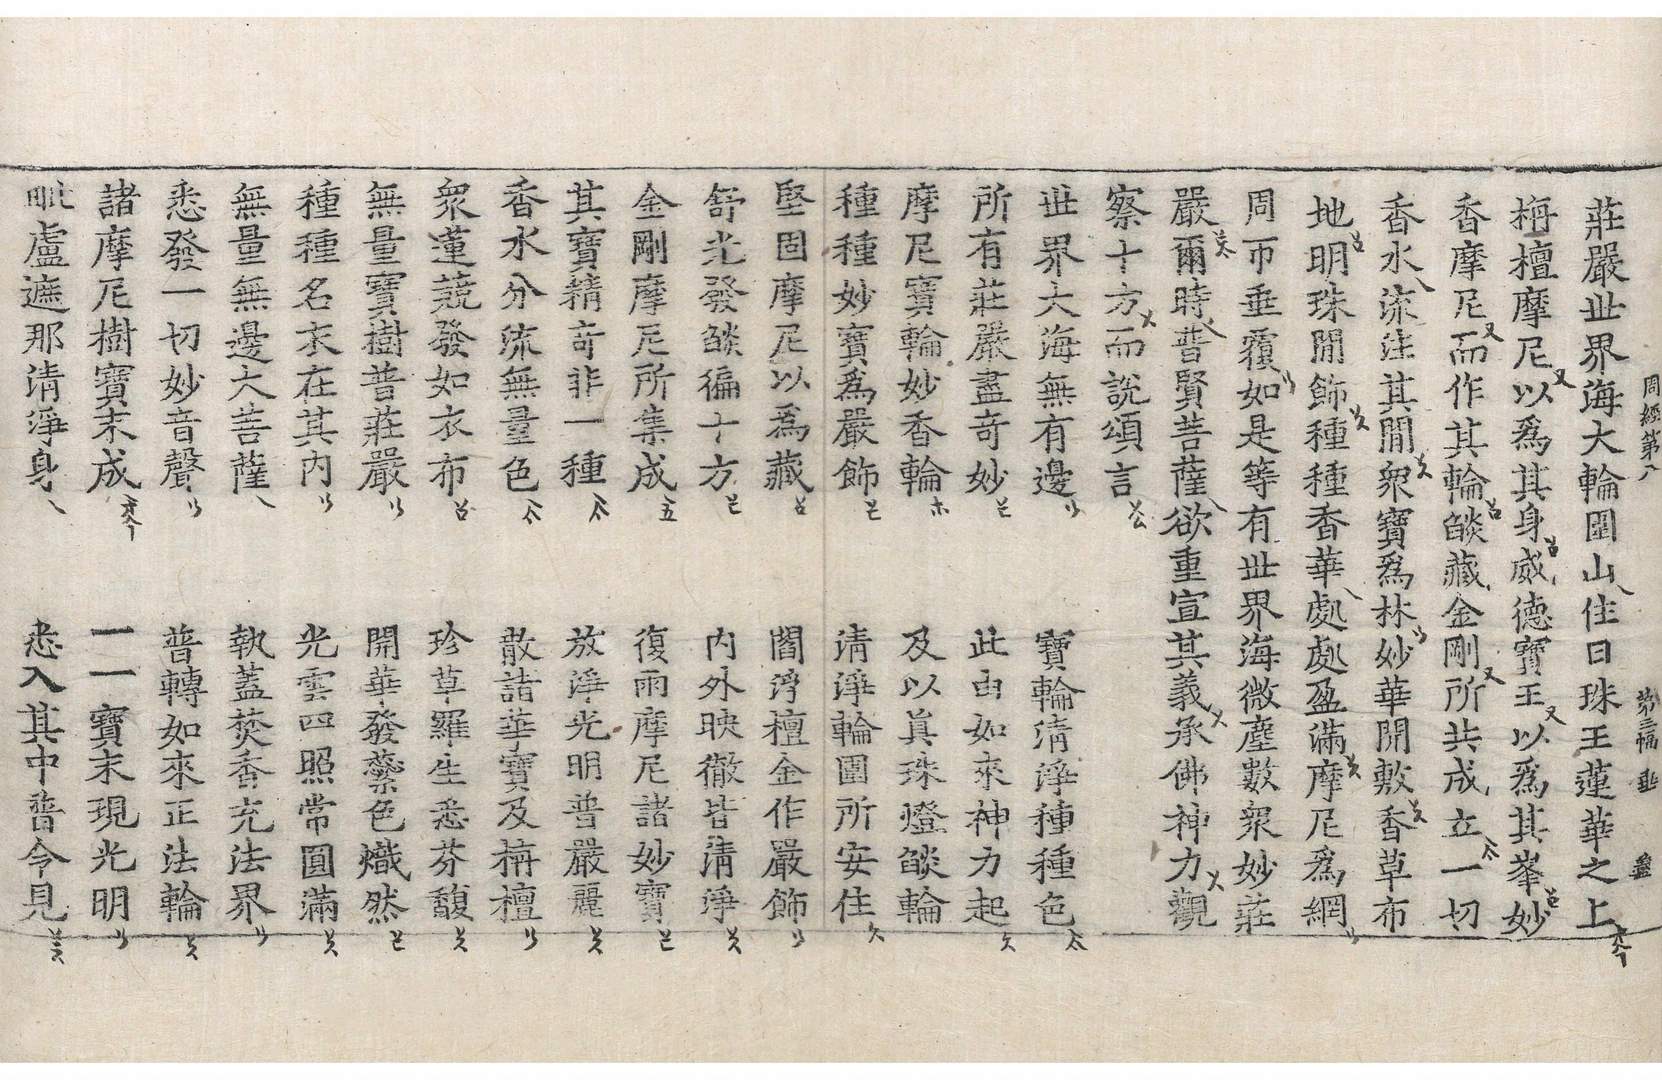 周經第八 第三幅
莊嚴世界海大輪圍山住日珠王蓮華之上
栴檀摩尼以爲其身威德寶王以爲其峯妙
香摩尼而作其輪燄藏金剛所共成立一切
香水流注其閒衆寶爲林妙華開敷香草布
地明珠閒飾種種香華處處盈滿摩尼爲網
周帀垂覆如是等有世界海微塵數衆妙莊
嚴爾時普賢菩薩欲重宣其義承佛神力觀
察十方而說頌言
世界大海無有邊 寶輪清淨種種色
所有莊嚴盡奇妙 此由如來神力起
摩尼寶輪妙香輪 及以眞珠燈燄輪
種種妙寶爲嚴飾 清淨輪圍所安住
堅固摩尼以爲藏 閻浮檀金作嚴飾
舒光發燄徧十方 內外映徹皆清淨
金剛摩尼所集成 復雨摩尼諸妙寶
其寶精奇非一種 放淨光明普嚴麗
香水分流無量色 散諸華寶及栴檀
衆蓮競發如衣布 珍草羅生悉芬馥
無量寶樹普莊嚴 開華發蘂色熾然
種種名衣在其內 光雲四照常圓滿
無量無邊大菩薩 執蓋焚香充法界
悉發一切妙音聲 普轉如來正法輪
諸摩尼樹寶末成 一一寶末現光明
毗盧遮那清淨身 悉入其中普令見